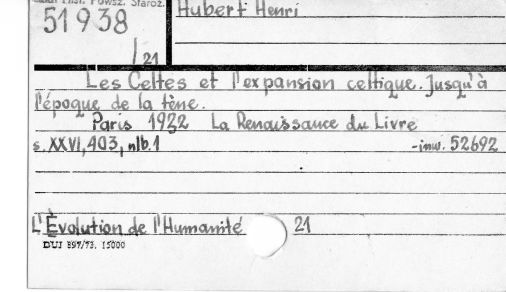 Inst. Powsz. Staroż.
51938
/21
Hubert Henri
Les Celtes et l'expansion celtique. Jusqu'à
l'époque de la tène.
Paris 1932 La Renaissance du Livre
s. XXVI, 403, nlb. 1 -inw. 52692
L'Évolution de l'Humanité 21
DUJ 897/73. 15000